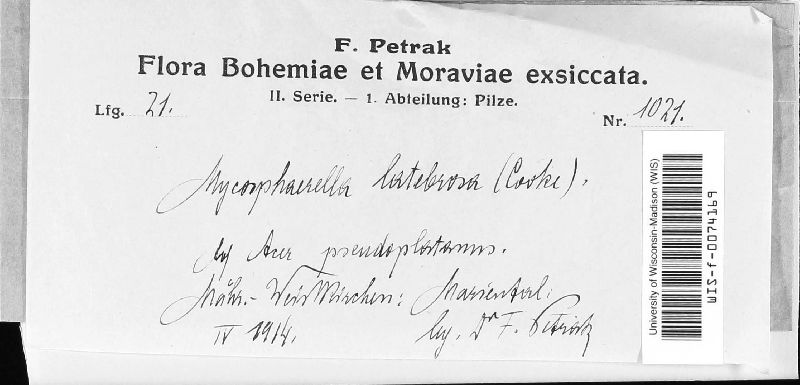 F. Petrak
Flora Bohemiae et Moraviae exsiccata.
II. Serie. — 1. Abteilung: Pilze.
Lfg. 21.
Nr. 1021.
Mycosphaerella latebrosa (Cooke).
Auf Acer pseudoplatanus.
Mähr.-Weisskirchen: Mariental.
IV 1914.
leg. Dr F. Petrak
University of Wisconsin-Madison (WIS)
WIS-f-0074169